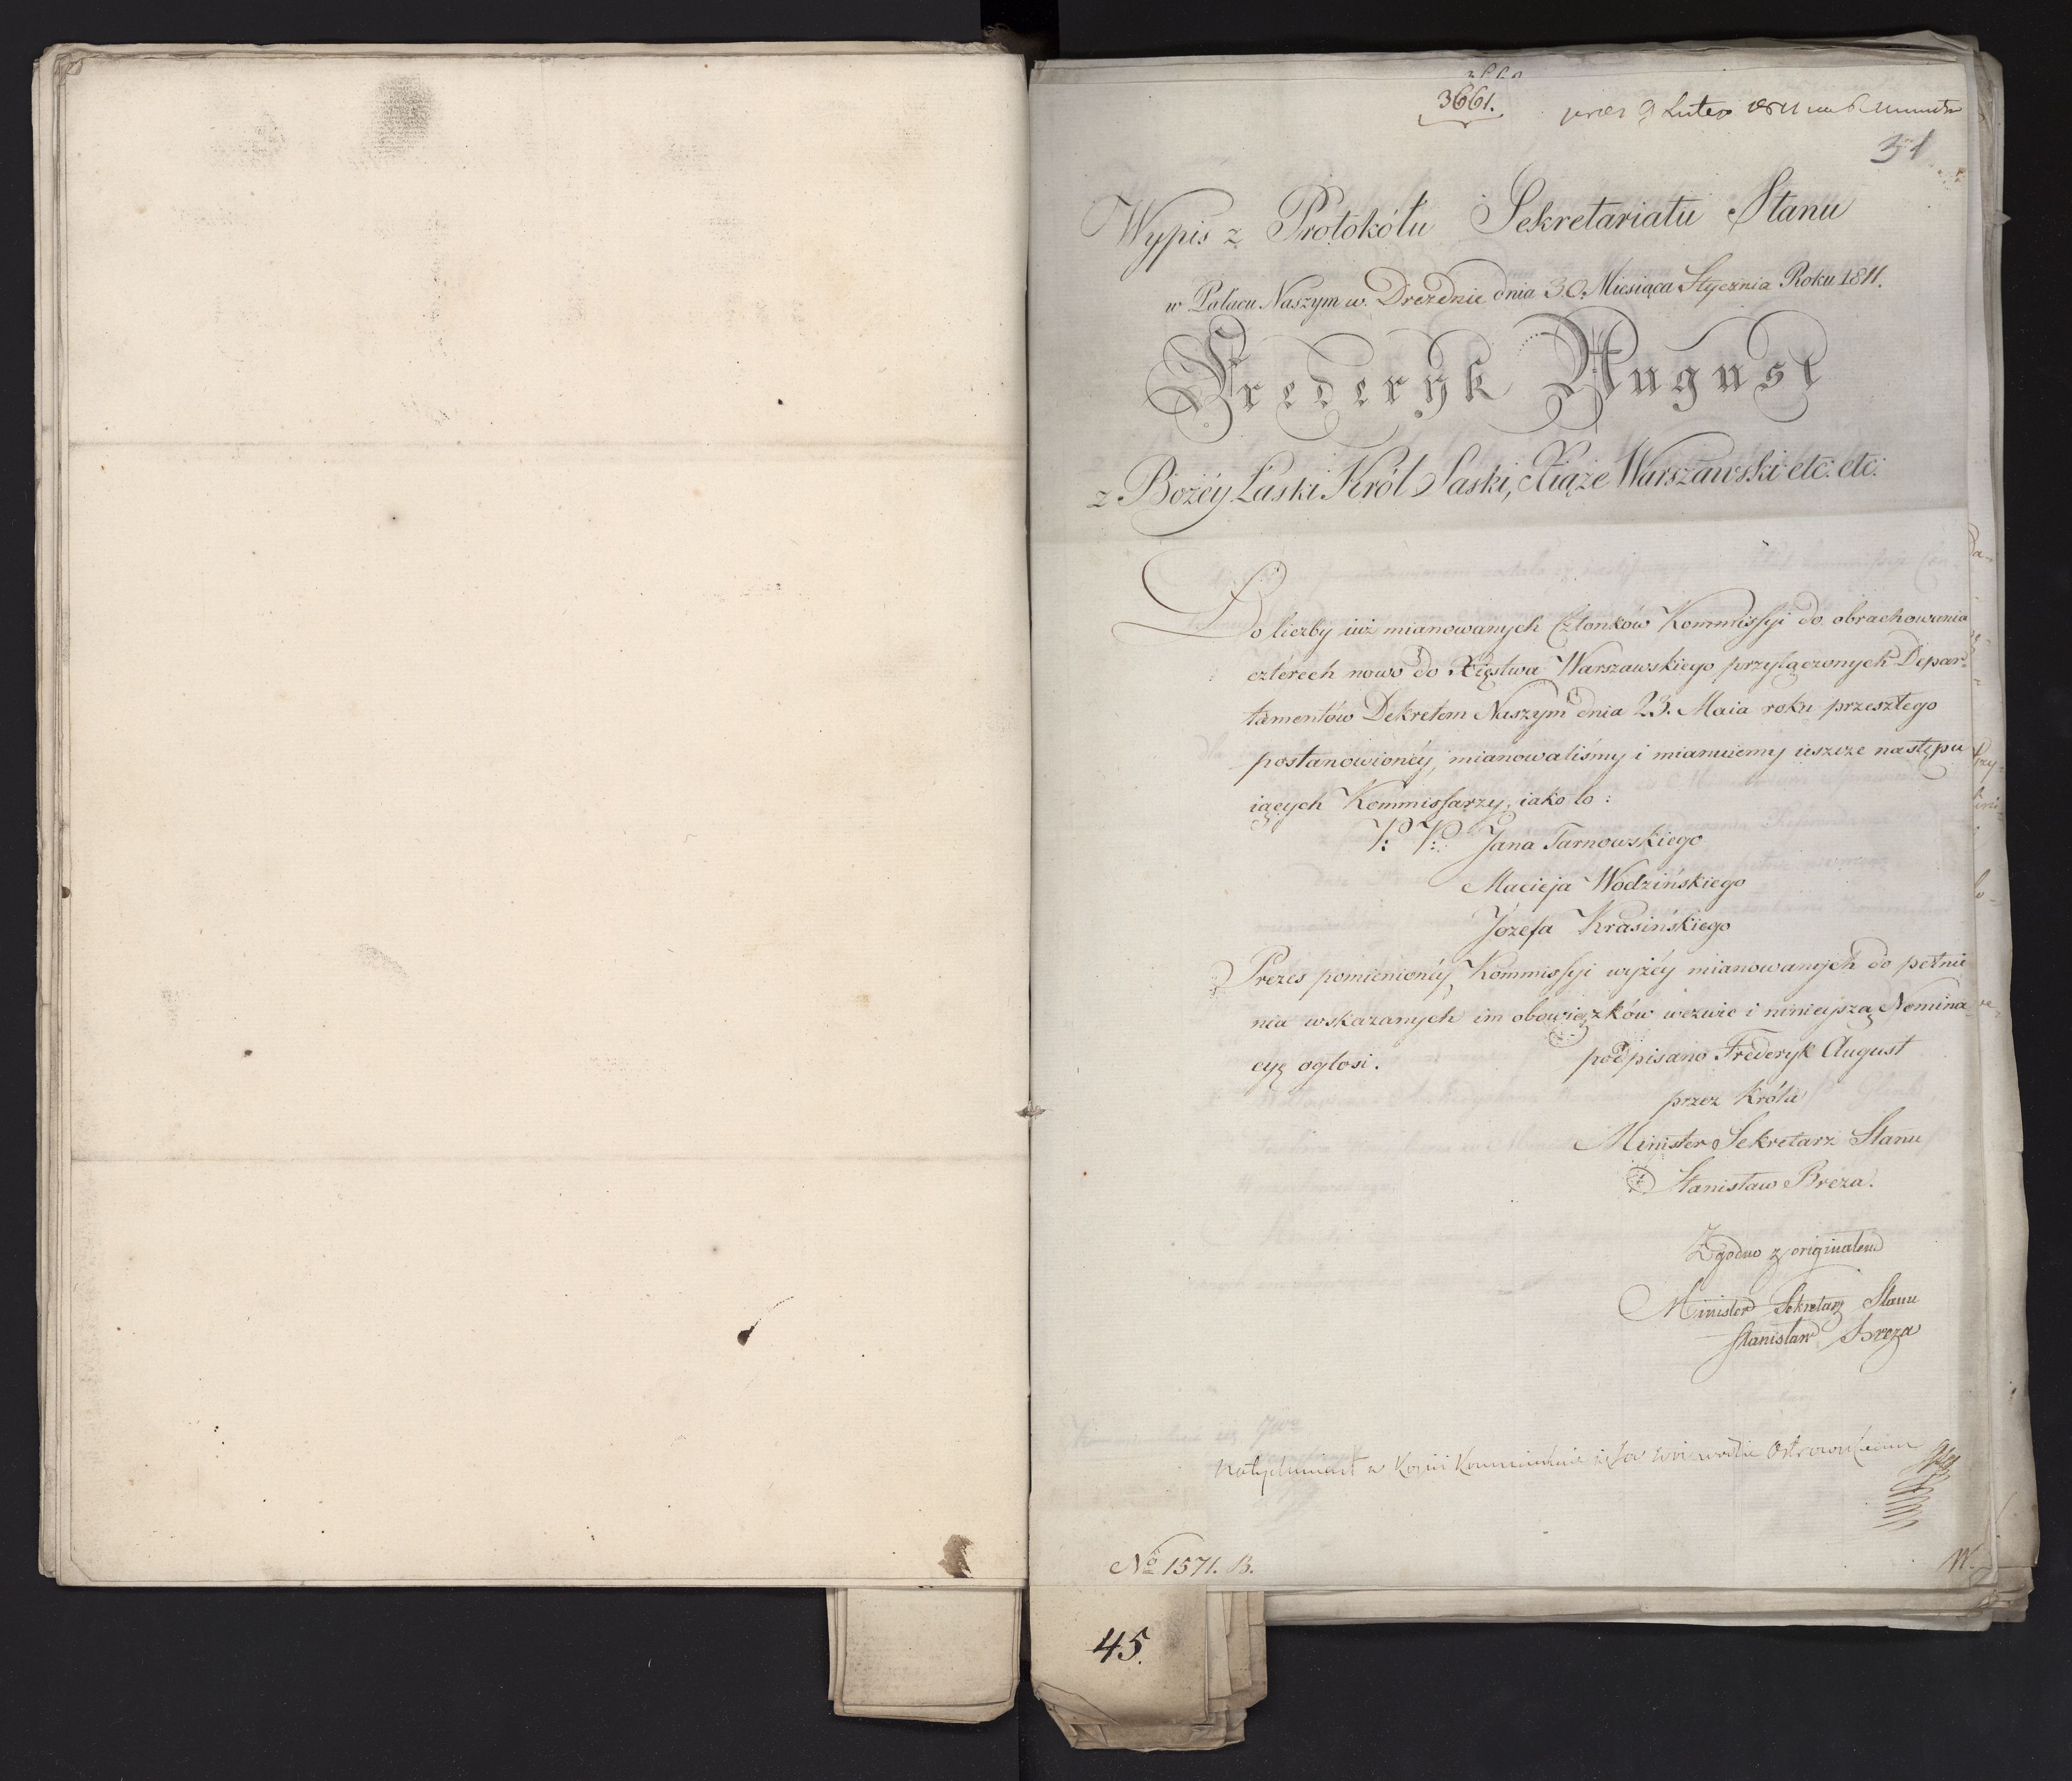 3661.
9 Lutego 1811
31
Wypis z Protokółu Sekretariatu Stanu
w Pałacu Naszym w Dreźdnie dnia 30. Miesiąca Stycznia Roku 1811.
Frederyk August
z Bożéy Łaski Król Saski, Xiąże Warszawski etc: etc:
Do liczby iuż mianowanych Członków Kommissyi do obrachowania
czterech nowo do Xięstwa Warszawskiego przyłączonych Depar-
tamentów Dekretem Naszym dnia 23. Maia roku przeszłego
postanowionéy, mianowaliśmy i mianuiemy ieszcze następu
iących Kommissarzy, iako to:
P: P: Jana Tarnowskiego
Macieja Wodzińskiego
Józefa Krasińskiego
Prezes pomienionéy Kommissyi wyżéy mianowanych do pełnie
nia wskazanych im obowiązków wezwie i ninieyszą Nomina
cyę ogłosi.
podpisano Frederyk August
przez Króla
Minister Sekretarz Stanu
Stanisław Breza.
Zgodno z originałem
Minister Sekretarz Stanu
Stanisław Breza
Natychmiast w Kopii
No 1571. B.
45.